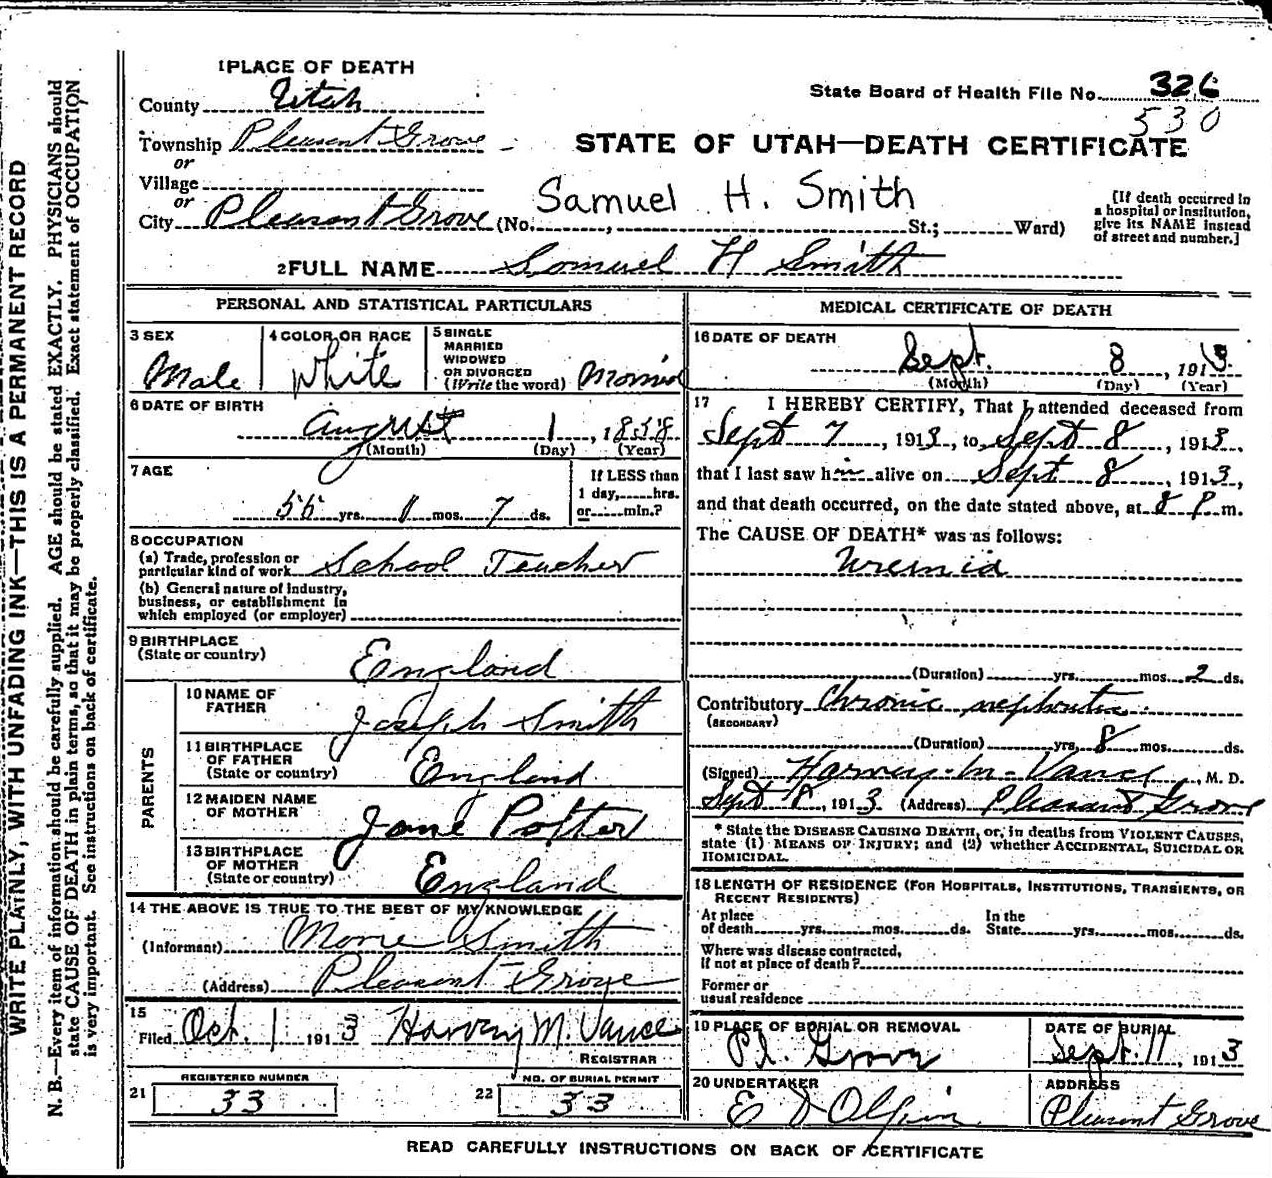 WRITE PLAINLY, WITH UNFADING INK—THIS IS A PERMANENT RECORD
N. B.—Every item of information should be carefully supplied. AGE should be stated EXACTLY. PHYSICIANS should
state CAUSE OF DEATH in plain terms, so that it may be properly classified. Exact statement of OCCUPATION
is very important. See instructions on back of certificate.
1 PLACE OF DEATH
County Utah
Township Pleasant Grove
or
Village
or
City Pleasant Grove (No. , St.; Ward)
State Board of Health File No. 326
530
STATE OF UTAH—DEATH CERTIFICATE
Samuel H. Smith
[If death occurred in
a hospital or institution,
give its NAME instead
of street and number.]
2 FULL NAME Samuel H Smith
PERSONAL AND STATISTICAL PARTICULARS
3 SEX
Male
4 COLOR OR RACE
White
5 SINGLE
MARRIED
WIDOWED
OR DIVORCED
(Write the word) Married
6 DATE OF BIRTH
August 1, 1858
(Month) (Day) (Year)
7 AGE
55 yrs. 1 mos. 7 ds.
If LESS than
1 day, hrs.
or min.?
8 OCCUPATION
(a) Trade, profession or
particular kind of work School Teacher
(b) General nature of industry,
business, or establishment in
which employed (or employer)
9 BIRTHPLACE
(State or country)
England
PARENTS
10 NAME OF
FATHER
Joseph Smith
11 BIRTHPLACE
OF FATHER
(State or country)
England
12 MAIDEN NAME
OF MOTHER
Jane Potter
13 BIRTHPLACE
OF MOTHER
(State or country)
England
14 THE ABOVE IS TRUE TO THE BEST OF MY KNOWLEDGE
(Informant) Smith
(Address) Pleasant Grove
15
Filed Oct. 1 1913 Harvey M. Vance
REGISTRAR
21 REGISTERED NUMBER
33
22 NO. OF BURIAL PERMIT
33
MEDICAL CERTIFICATE OF DEATH
16 DATE OF DEATH
Sept. 8, 1913
(Month) (Day) (Year)
17 I HEREBY CERTIFY, That I attended deceased from
Sept 7, 1913, to Sept 8, 1913,
that I last saw him alive on Sept 8, 1913,
and that death occurred, on the date stated above, at 8 P. m.
The CAUSE OF DEATH* was as follows:
Uremia
(Duration) yrs. mos. 2 ds.
Contributory Chronic nephritis
(SECONDARY)
(Duration) yrs. 8 mos. ds.
(Signed) Harvey M. Vance, M. D.
Sept 8, 1913 (Address) Pleasant Grove
* State the DISEASE CAUSING DEATH, or, in deaths from VIOLENT CAUSES,
state (1) MEANS OF INJURY; and (2) whether ACCIDENTAL, SUICIDAL OR
HOMICIDAL.
18 LENGTH OF RESIDENCE (FOR HOSPITALS, INSTITUTIONS, TRANSIENTS, OR
RECENT RESIDENTS)
At place
of death yrs. mos. ds.
In the
State yrs. mos. ds.
Where was disease contracted,
If not at place of death?
Former or
usual residence
19 PLACE OF BURIAL OR REMOVAL
Pl. Grove
DATE OF BURIAL
Sept. 11, 1913
20 UNDERTAKER
E J Olpin
ADDRESS
Pleasant Grove
READ CAREFULLY INSTRUCTIONS ON BACK OF CERTIFICATE